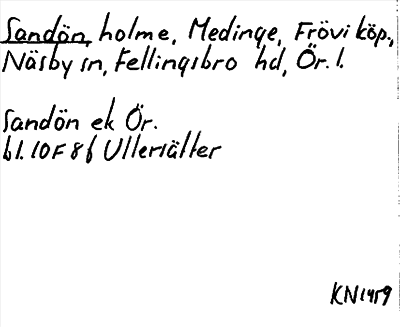 Sandön, holme, Medinge, Frövi köp.,
Näsby sn, Fellingsbro hd, Ör. l.
Sandön ek Ör.
bl. 10F 8f Ullersätter
KN1959